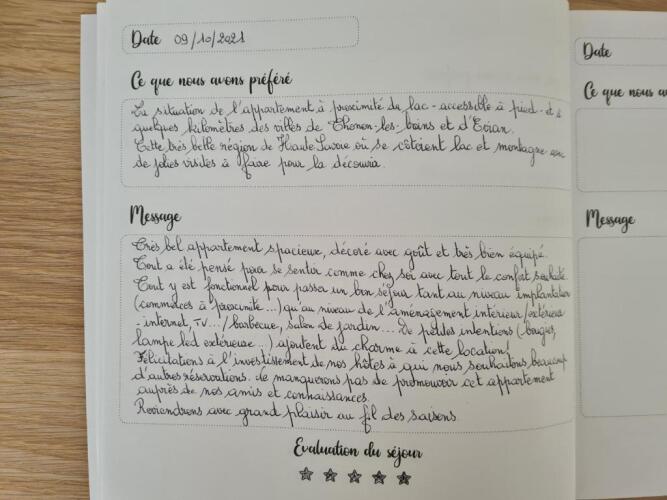 Date 09/10/2021
Ce que nous avons préféré
La situation de l'appartement à proximité du lac - accessible à pied - et à
quelques kilomètres des villes de Thonon-les-bains et d'Evian.
Cette très belle région de Haute Savoie où se côtoient lac et montagne avec
de jolies visites à faire pour la découvrir.
Message
Très bel appartement spacieux, décoré avec goût et très bien équipé.
Tout a été pensé pour se sentir comme chez soi avec tout le confort souhaité.
Tout y est fonctionnel pour passer un bon séjour tant au niveau implantation
(commerces à proximité...) qu'au niveau de l'aménagement intérieur/extérieur
- internet, TV.../ barbecue, salon de jardin... De petites intentions (bougies,
lampe led extérieure...) ajoutent du charme à cette location!
Félicitations à l'investissement de nos hôtes à qui nous souhaitons beaucoup
d'autres réservations. Ne manquerons pas de promouvoir cet appartement
auprès de nos amis et connaissances.
Reviendrons avec grand plaisir au fil des saisons
Evaluation du séjour
Date
Ce que nous av
Message